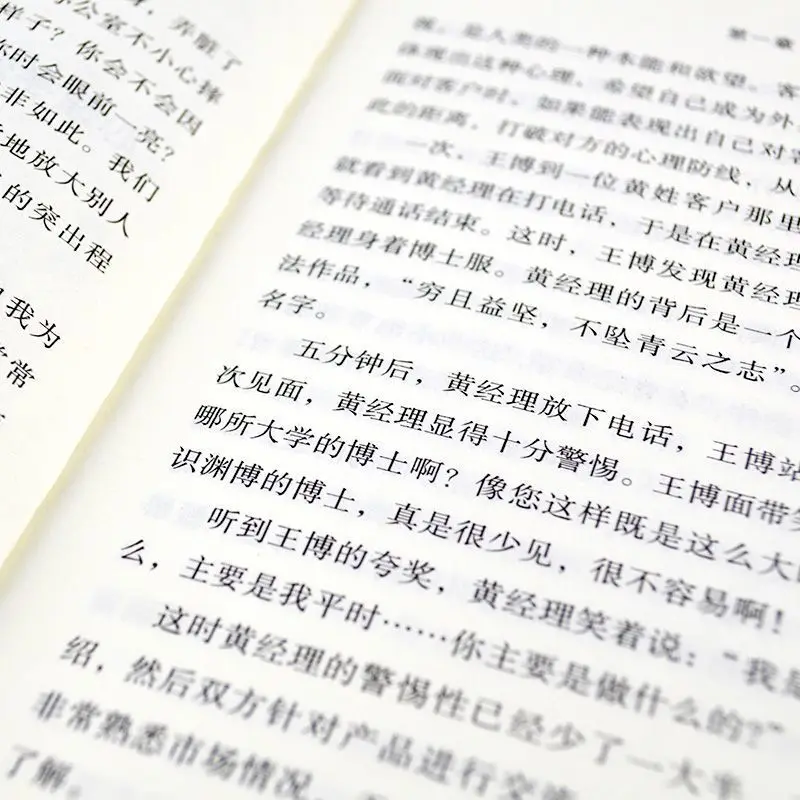 ，弄脏了
公室不小心摔
样子？你会不会因
时会眼前一亮？
非如此。我们
地放大别人
的突出程
我为
常
第一章
是人类的一种本能和欲望。客
现出这种心理，希望自己成为外
面对客户时，如果能表现出自己对客
此的距离，打破对方的心理防线，从
一次，王博到一位黄姓客户那里
就看到黄经理在打电话，于是在黄经理
等待通话结束。这时，王博发现黄经理
经理身着博士服。黄经理的背后是一个
法作品，“穷且益坚，不坠青云之志”。
名字。
五分钟后，黄经理放下电话，王博站
次见面，黄经理显得十分警惕。王博面带笑
哪所大学的博士啊？像您这样既是这么大
识渊博的博士，真是很少见，很不容易啊！
听到王博的夸奖，黄经理笑着说：“我是
么，主要是我平时……你主要是做什么的？”
这时黄经理的警惕性已经少了一大半
绍，然后双方针对产品进行交流
非常熟悉市场情况，
了解。